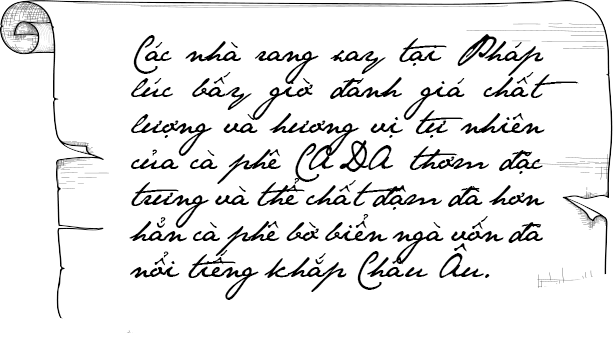 Các nhà rang xay tại Pháp
lúc bấy giờ đánh giá chất
lượng và hương vị tự nhiên
của cà phê CADA thơm đặc
trưng và thể chất đậm đà hơn
hẳn cà phê bờ biển ngà vốn đã
nổi tiếng khắp Châu Âu.